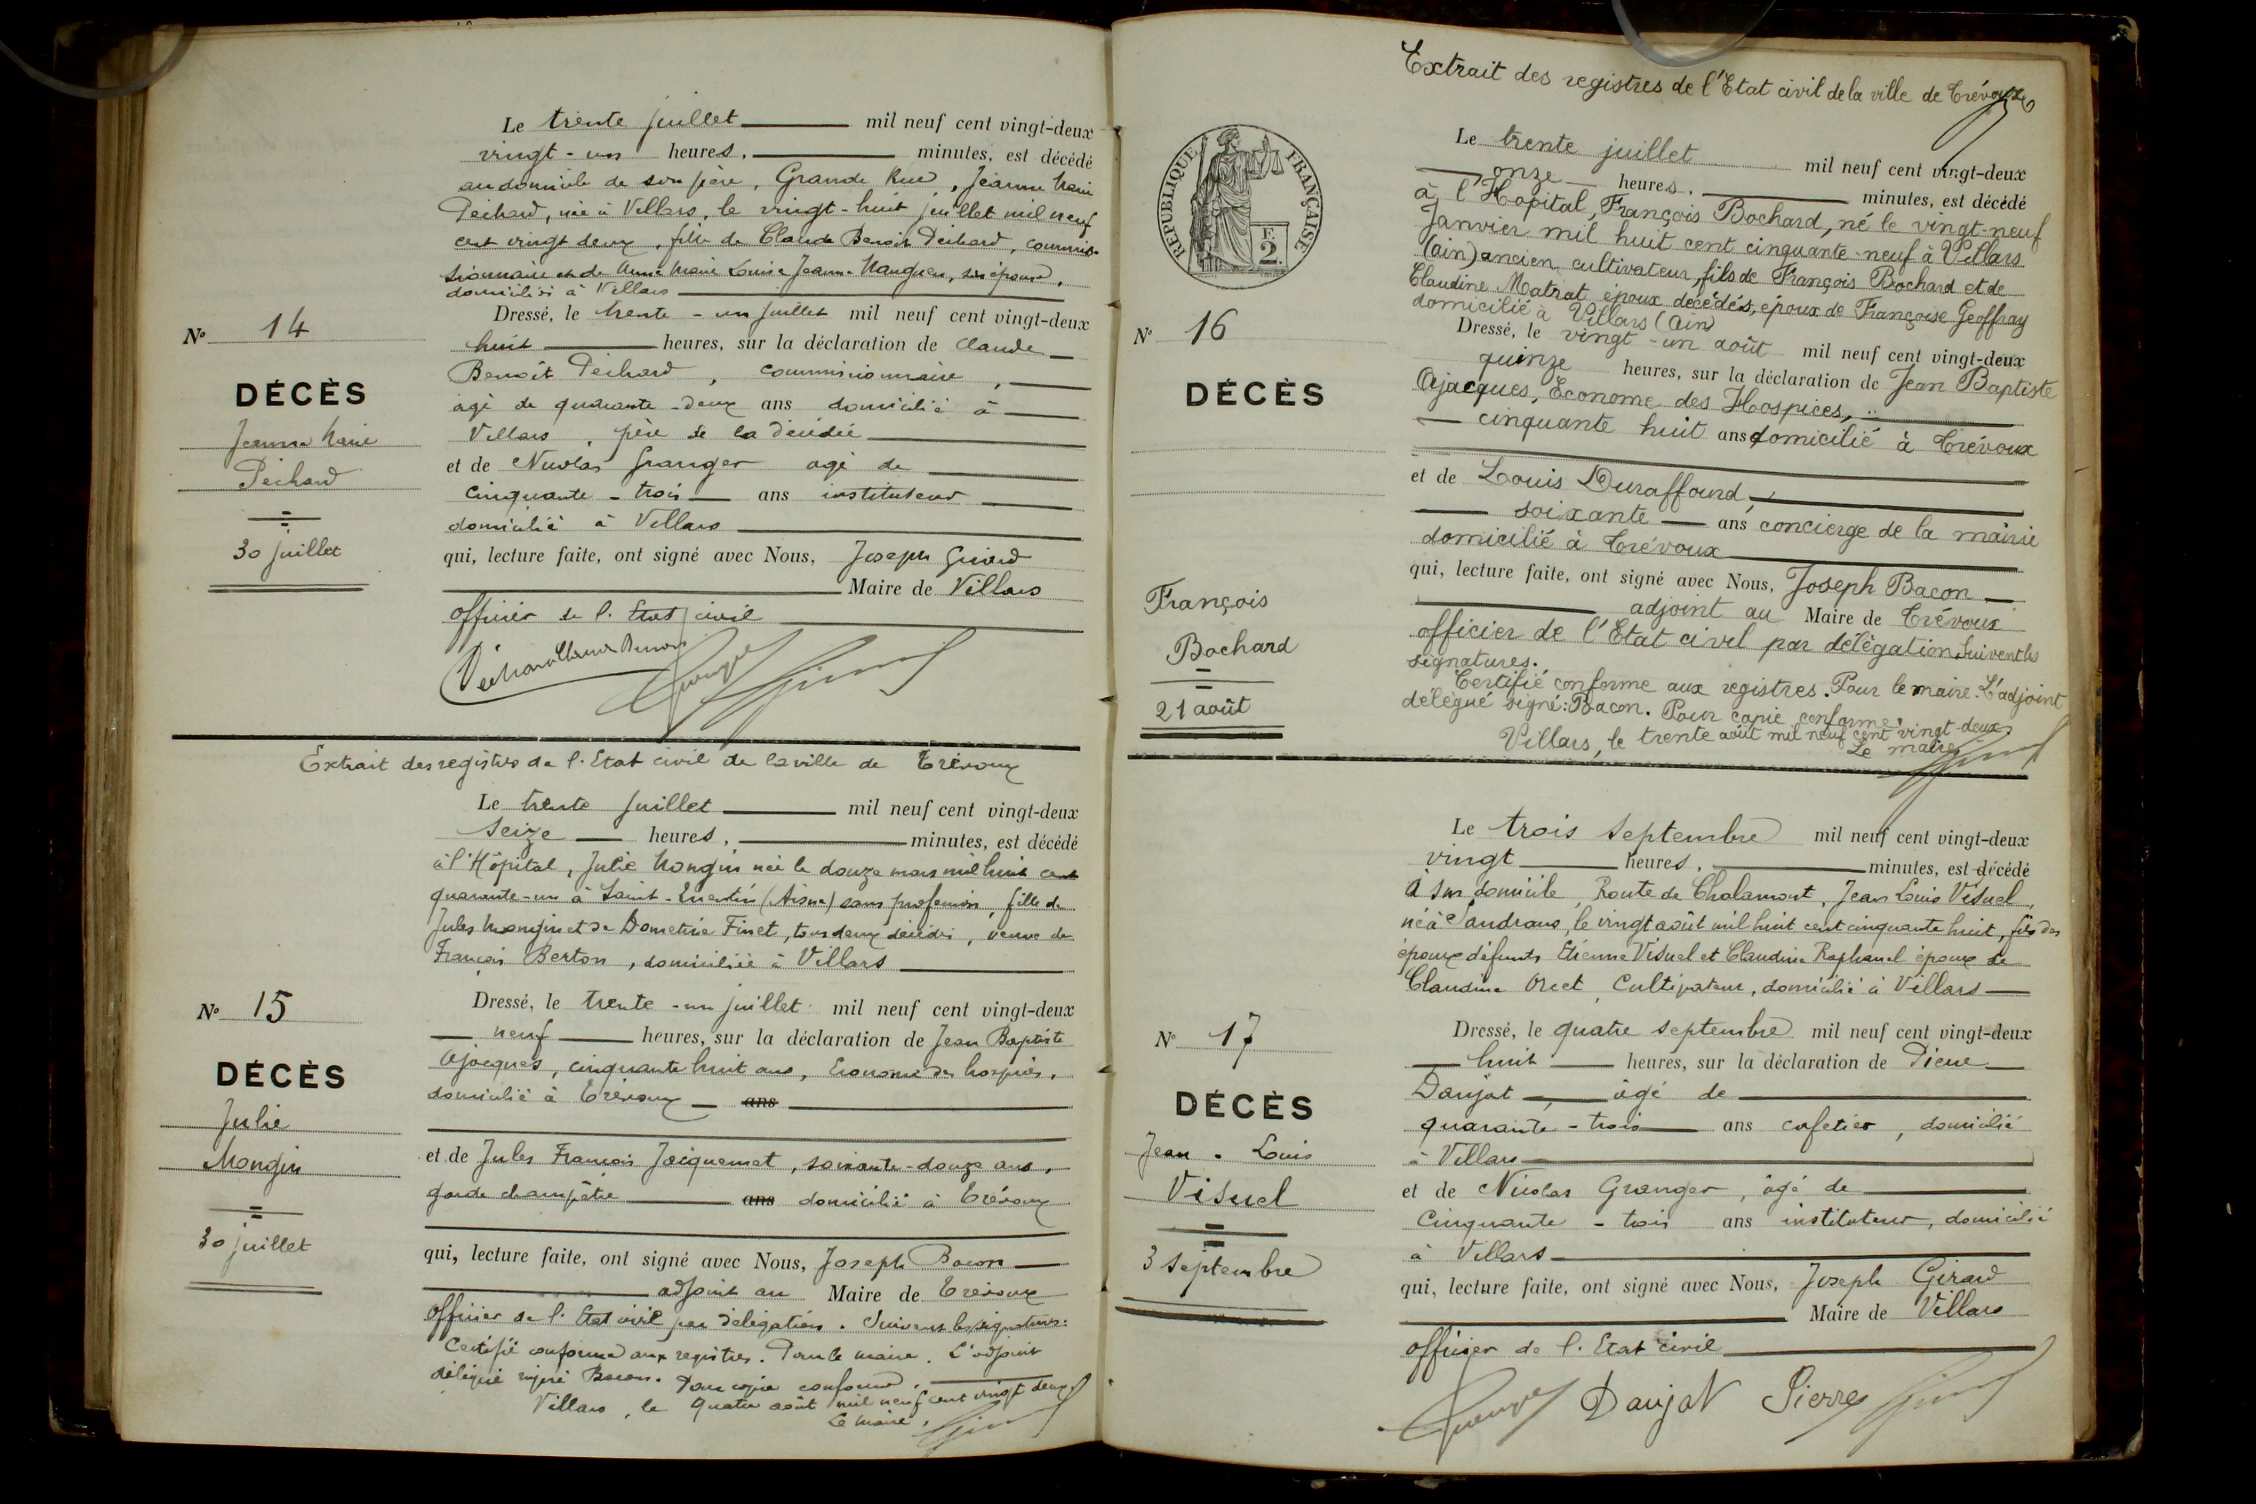 Le trente juillet mil neuf cent vingt-deux
vingt-un heures, minutes, est décédé
au domicile de son père, Grande Rue, Jeanne Marie
Péchard, née à Villars, le vingt-huit juillet mil neuf
cent vingt deux, fille de Claude Benoît Péchard, commis-
sionnaire et de Anne Marie Louise Jeanne son épouse,
domiciliés à Villars
Dressé, le trente-un juillet mil neuf cent vingt-deux
huit heures, sur la déclaration de Claude
Benoît Péchard, commissionnaire,
âgé de quarante-deux ans domicilié à
Villars, père de la décédée
et de Nicolas Granger âgé de
cinquante-trois ans instituteur
domicilié à Villars
qui, lecture faite, ont signé avec Nous, Joseph Girard
Maire de Villars
officier de l'Etat civil
No 14
DÉCÈS
Jeanne Marie
Péchard
30 juillet
Extrait des registres de l'Etat civil de la ville de Trévoux
Le trente juillet mil neuf cent vingt-deux
seize heures, minutes, est décédé
à l'Hôpital, Julie Mongin née le douze mars mil huit cent
quarante-un à Saint-Quentin (Aisne) sans profession, fille de
Jules Mongin et de Dometrie Finet, tous deux décédés, veuve de
François Berton, domiciliée à Villars
Dressé, le trente-un juillet mil neuf cent vingt-deux
neuf heures, sur la déclaration de Jean Baptiste
Ajacques, cinquante huit ans, Econome des hospices,
domicilié à Trévoux ans
et de Jules François Jacquemet, soixante-douze ans,
garde champêtre ans domicilié à Trévoux
qui, lecture faite, ont signé avec Nous, Joseph Bacon
adjoint au Maire de Trévoux
officier de l'Etat civil par délégation. Suivent les signatures:
Certifié conforme aux registres. Pour le maire. L'adjoint
délégué signé Bacon. Pour copie conforme.
Villars, le quatre août mil neuf cent vingt deux.
Le maire,
No 15
DÉCÈS
Julie
Mongin
30 juillet
Extrait des registres de l'Etat civil de la ville de Trévoux
RÉPUBLIQUE FRANÇAISE
F.
2.
Le trente juillet mil neuf cent vingt-deux
onze heures, minutes, est décédé
à l'Hopital, François Bochard, né le vingt-neuf
Janvier mil huit cent cinquante-neuf à Villars
(ain) ancien cultivateur, fils de François Bochard et de
Claudine Matrat époux décédés, époux de Françoise Geoffray
domicilié à Villars (Ain)
Dressé, le vingt-un août mil neuf cent vingt-deux
quinze heures, sur la déclaration de Jean Baptiste
Ajacques, Econome des Hospices,
cinquante huit ans domicilié à Trévoux
et de Louis Duraffourd,
soixante ans concierge de la mairie
domicilié à Trévoux
qui, lecture faite, ont signé avec Nous, Joseph Bacon
adjoint au Maire de Trévoux
officier de l'Etat civil par délégation. Suivent les
signatures.
Certifié conforme aux registres. Pour le maire. L'adjoint
délégué signé: Bacon. Pour copie conforme.
Villars, le trente août mil neuf cent vingt-deux.
Le maire,
No 16
DÉCÈS
François
Bochard
21 août
Le trois septembre mil neuf cent vingt-deux
vingt heures, minutes, est décédé
à son domicile, Route de Chalamont, Jean Louis Visuel,
né à Sandrans, le vingt août mil huit cent cinquante huit, fils des
époux défunts Etienne Visuel et Claudine Raphanel époux de
Claudine Orcet, Cultivateur, domicilié à Villars
Dressé, le quatre septembre mil neuf cent vingt-deux
huit heures, sur la déclaration de Pierre
Danjat, âgé de
quarante-trois ans cafetier, domicilié
à Villars
et de Nicolas Granger, âgé de
cinquante-trois ans instituteur, domicilié
à Villars
qui, lecture faite, ont signé avec Nous, Joseph Girard
Maire de Villars
officier de l'Etat civil
Danjat Pierre
No 17
DÉCÈS
Jean-Louis
Visuel
3 septembre